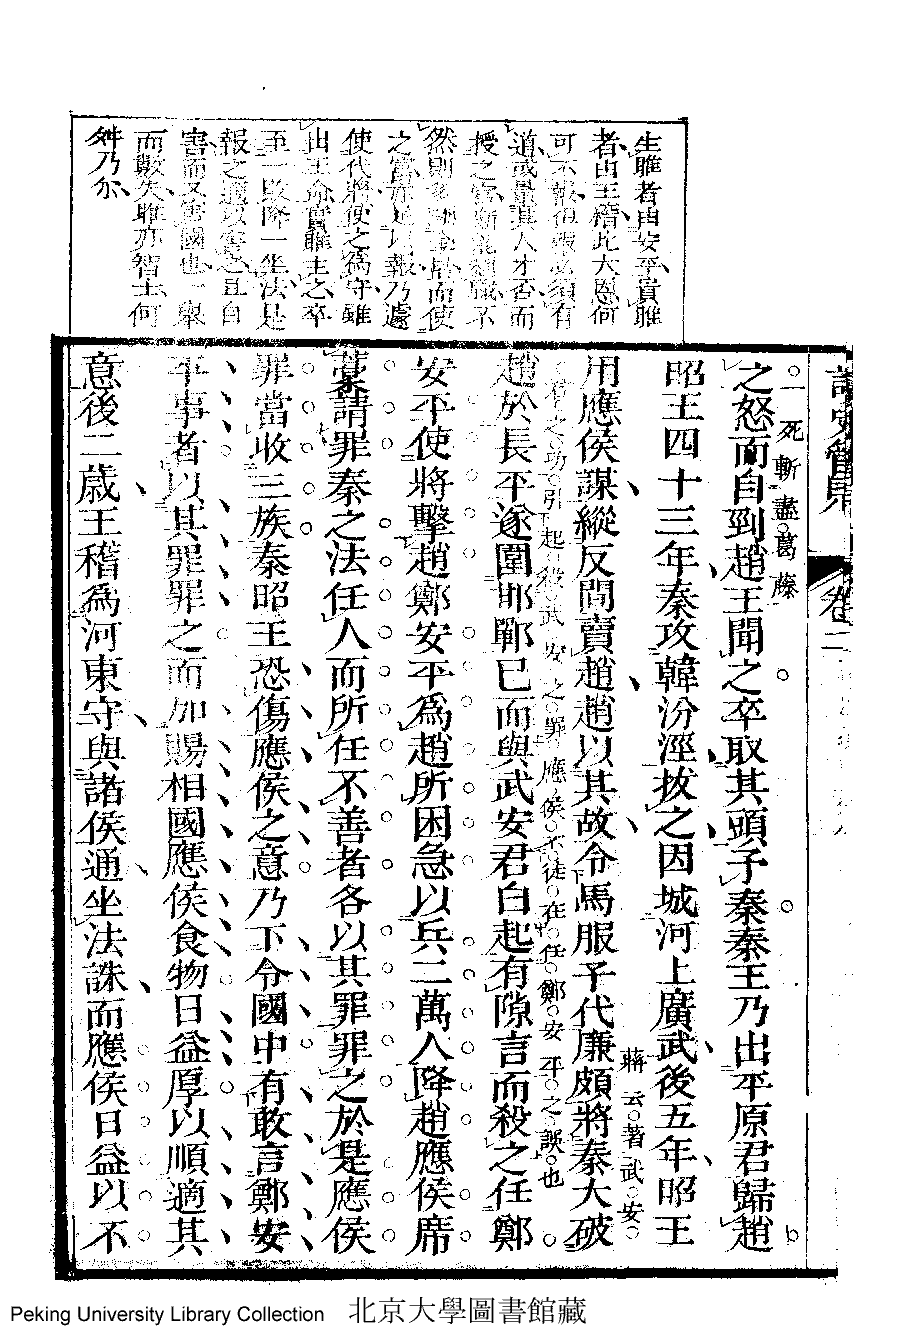 生睢者由安平貴睢
者由王稽此大恩何
可不報但報必須有
道或量其人才否而
授之官
然則 而使
之富厚足以報乃遽
使代將使之為守雖
出王命實睢主之卒
至一敗降一坐法是
報之適以害之且自
害而又害國也一舉
而數失睢亦智士何
舛乃尔
讀史管見 卷二
之怒而自剄趙王聞之卒取其頭予秦秦王乃出平原君歸趙
一死斬盡葛藤
昭王四十三年秦攻韓汾涇拔之因城河上廣武後五年昭王
用應侯謀縱反間賣趙趙以其故令馬服子代廉頗將秦大破
蔣云著武安
趙於長平遂圍邯鄲已而與武安君白起有隙言而殺之任鄭
有之功引起殺武安之罪應侯不徒在任鄭安平之誤也
安平使將擊趙鄭安平為趙所困急以兵二萬人降趙應侯席
藁請罪秦之法任人而所任不善者各以其罪罪之於是應侯
罪當收三族秦昭王恐傷應侯之意乃下令國中有敢言鄭安
平事者以其罪罪之而加賜相國應侯食物日益厚以順適其
意後二歲王稽為河東守與諸侯通坐法誅而應侯日益以不
Peking University Library Collection 北京大學圖書館藏